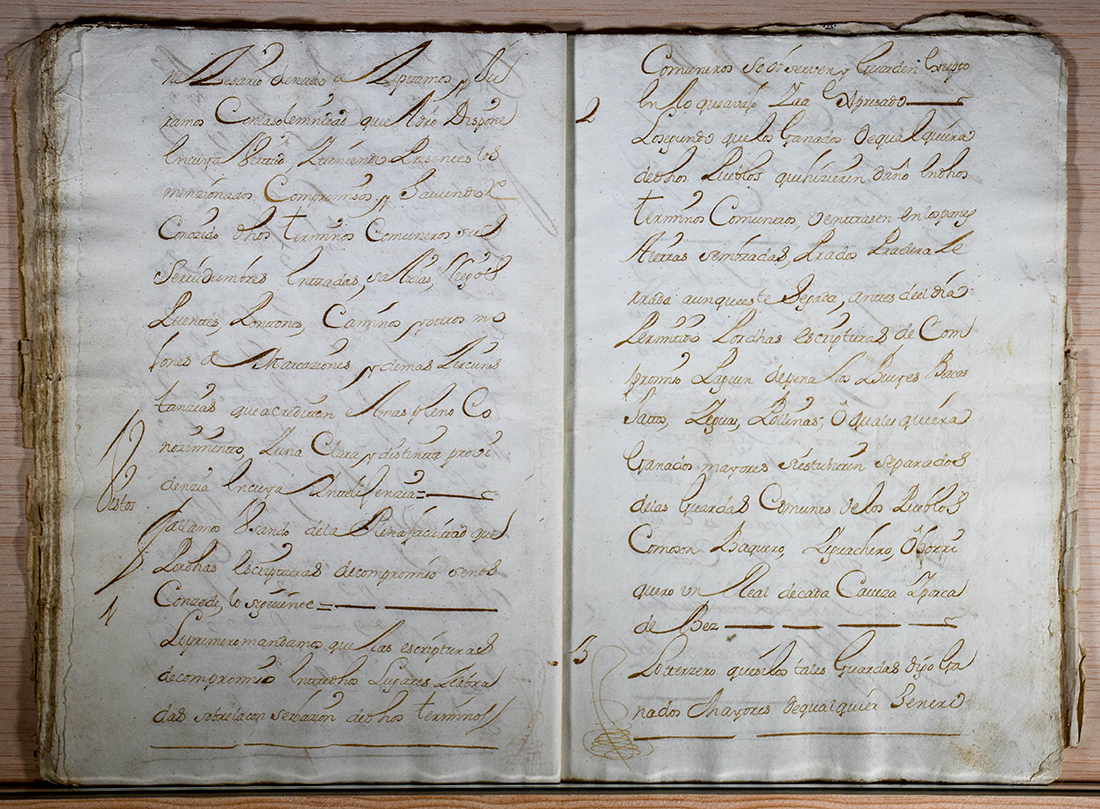 nezesario denado a Azeptamos, y Ju
ramos Conlasolemnidad que Aôro Dispone
En cuya Virtud, y teniendo Presentes los
menzionados Compromisos, y haviendo Re
Conozido dhos terminos Comuneros sus
Seruidumbres Entradas, salidas, Exidos
Puentes, Pontones, Caminos, y otros mo
Jones de Marcaziones, y demas Zircuns
tanzias que acrediten e Amas pleno Co
nozimiento, y una Clara, y distinta provi
denzia En cuya Yntelixenzia=
Vistos
fallamos Usando dela Plena facultad que
Pordhas escripturas de compromiso senos
Conzede, lo siguiente =
1
Loprimero mandamos que las escripturas
decompromiso Entredhos Lugares Zelebra
das sobrela conserbazion dedhos terminos
Comuneros se observen, y Guarden Exzepto
En lo queavajo Zra Expresado
2
Losegundo quelos Ganados dequalquiera
dedhos Pueblos quehizieren daño Endhos
terminos Comuneros, o entrasen en los panes
Atierras sembradas, Prados Pradera Ze
rrada aunqueeste Segada, antes del dia
Permitido Pordhas escripturas de Com
promiso Paguen depena los Bueyes Bacas
Jatos, Yeguas, Pollinas, O quales quiera
Ganados mayores siestubieren separados
delas Guardas Comunes de los Pueblos
Comoson Baquero, Yeguachero, O borri
quero un Real decada Caveza y poca
de Bez
3
Loterzero quesilos tales Guardas dijo Ga
nados Mayores dequalquier Genero